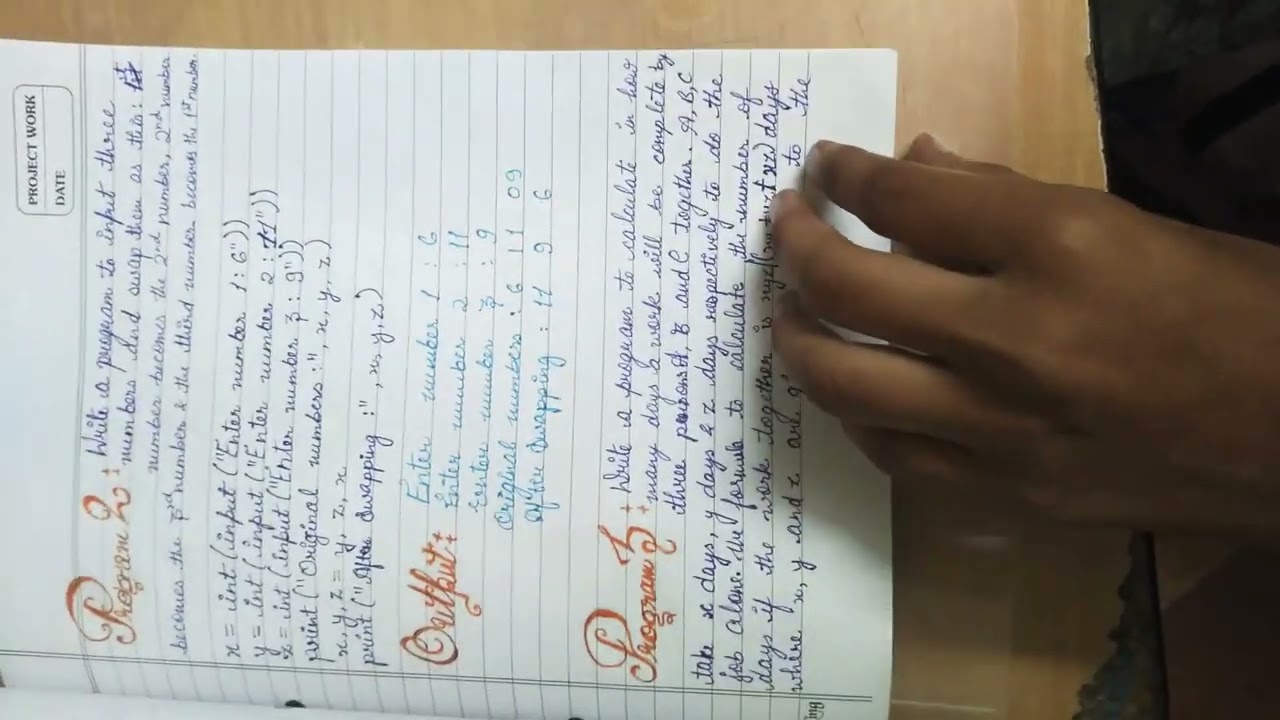 PROJECT WORK
DATE
Program 2 : Write a program to input three
numbers and swap them as this : 1st
number becomes the 2nd number, 2nd number
becomes the 3rd number & the third number becomes the 1st number.
x = int (input ("Enter number 1 : 6"))
y = int (input ("Enter number 2 : 11"))
z = int (input ("Enter number 3 : 9"))
print ("Original numbers :", x, y, z)
x, y, z = y, z, x
print ("After swapping :", x, y, z)
Output :
Enter number 1 : 6
Enter number 2 : 11
Enter number 3 : 9
Original numbers : 6 11 09
After swapping : 11 9 6
Program 3 : Write a program to calculate in how
many days a work will be complete by
three persons A, B and C together. A, B, C
take x days, y days & z days respectively to do the
job alone. The formula to calculate the number of
days if the work together is xyz/(xy+yz+xz) days
where x, y and z are to the